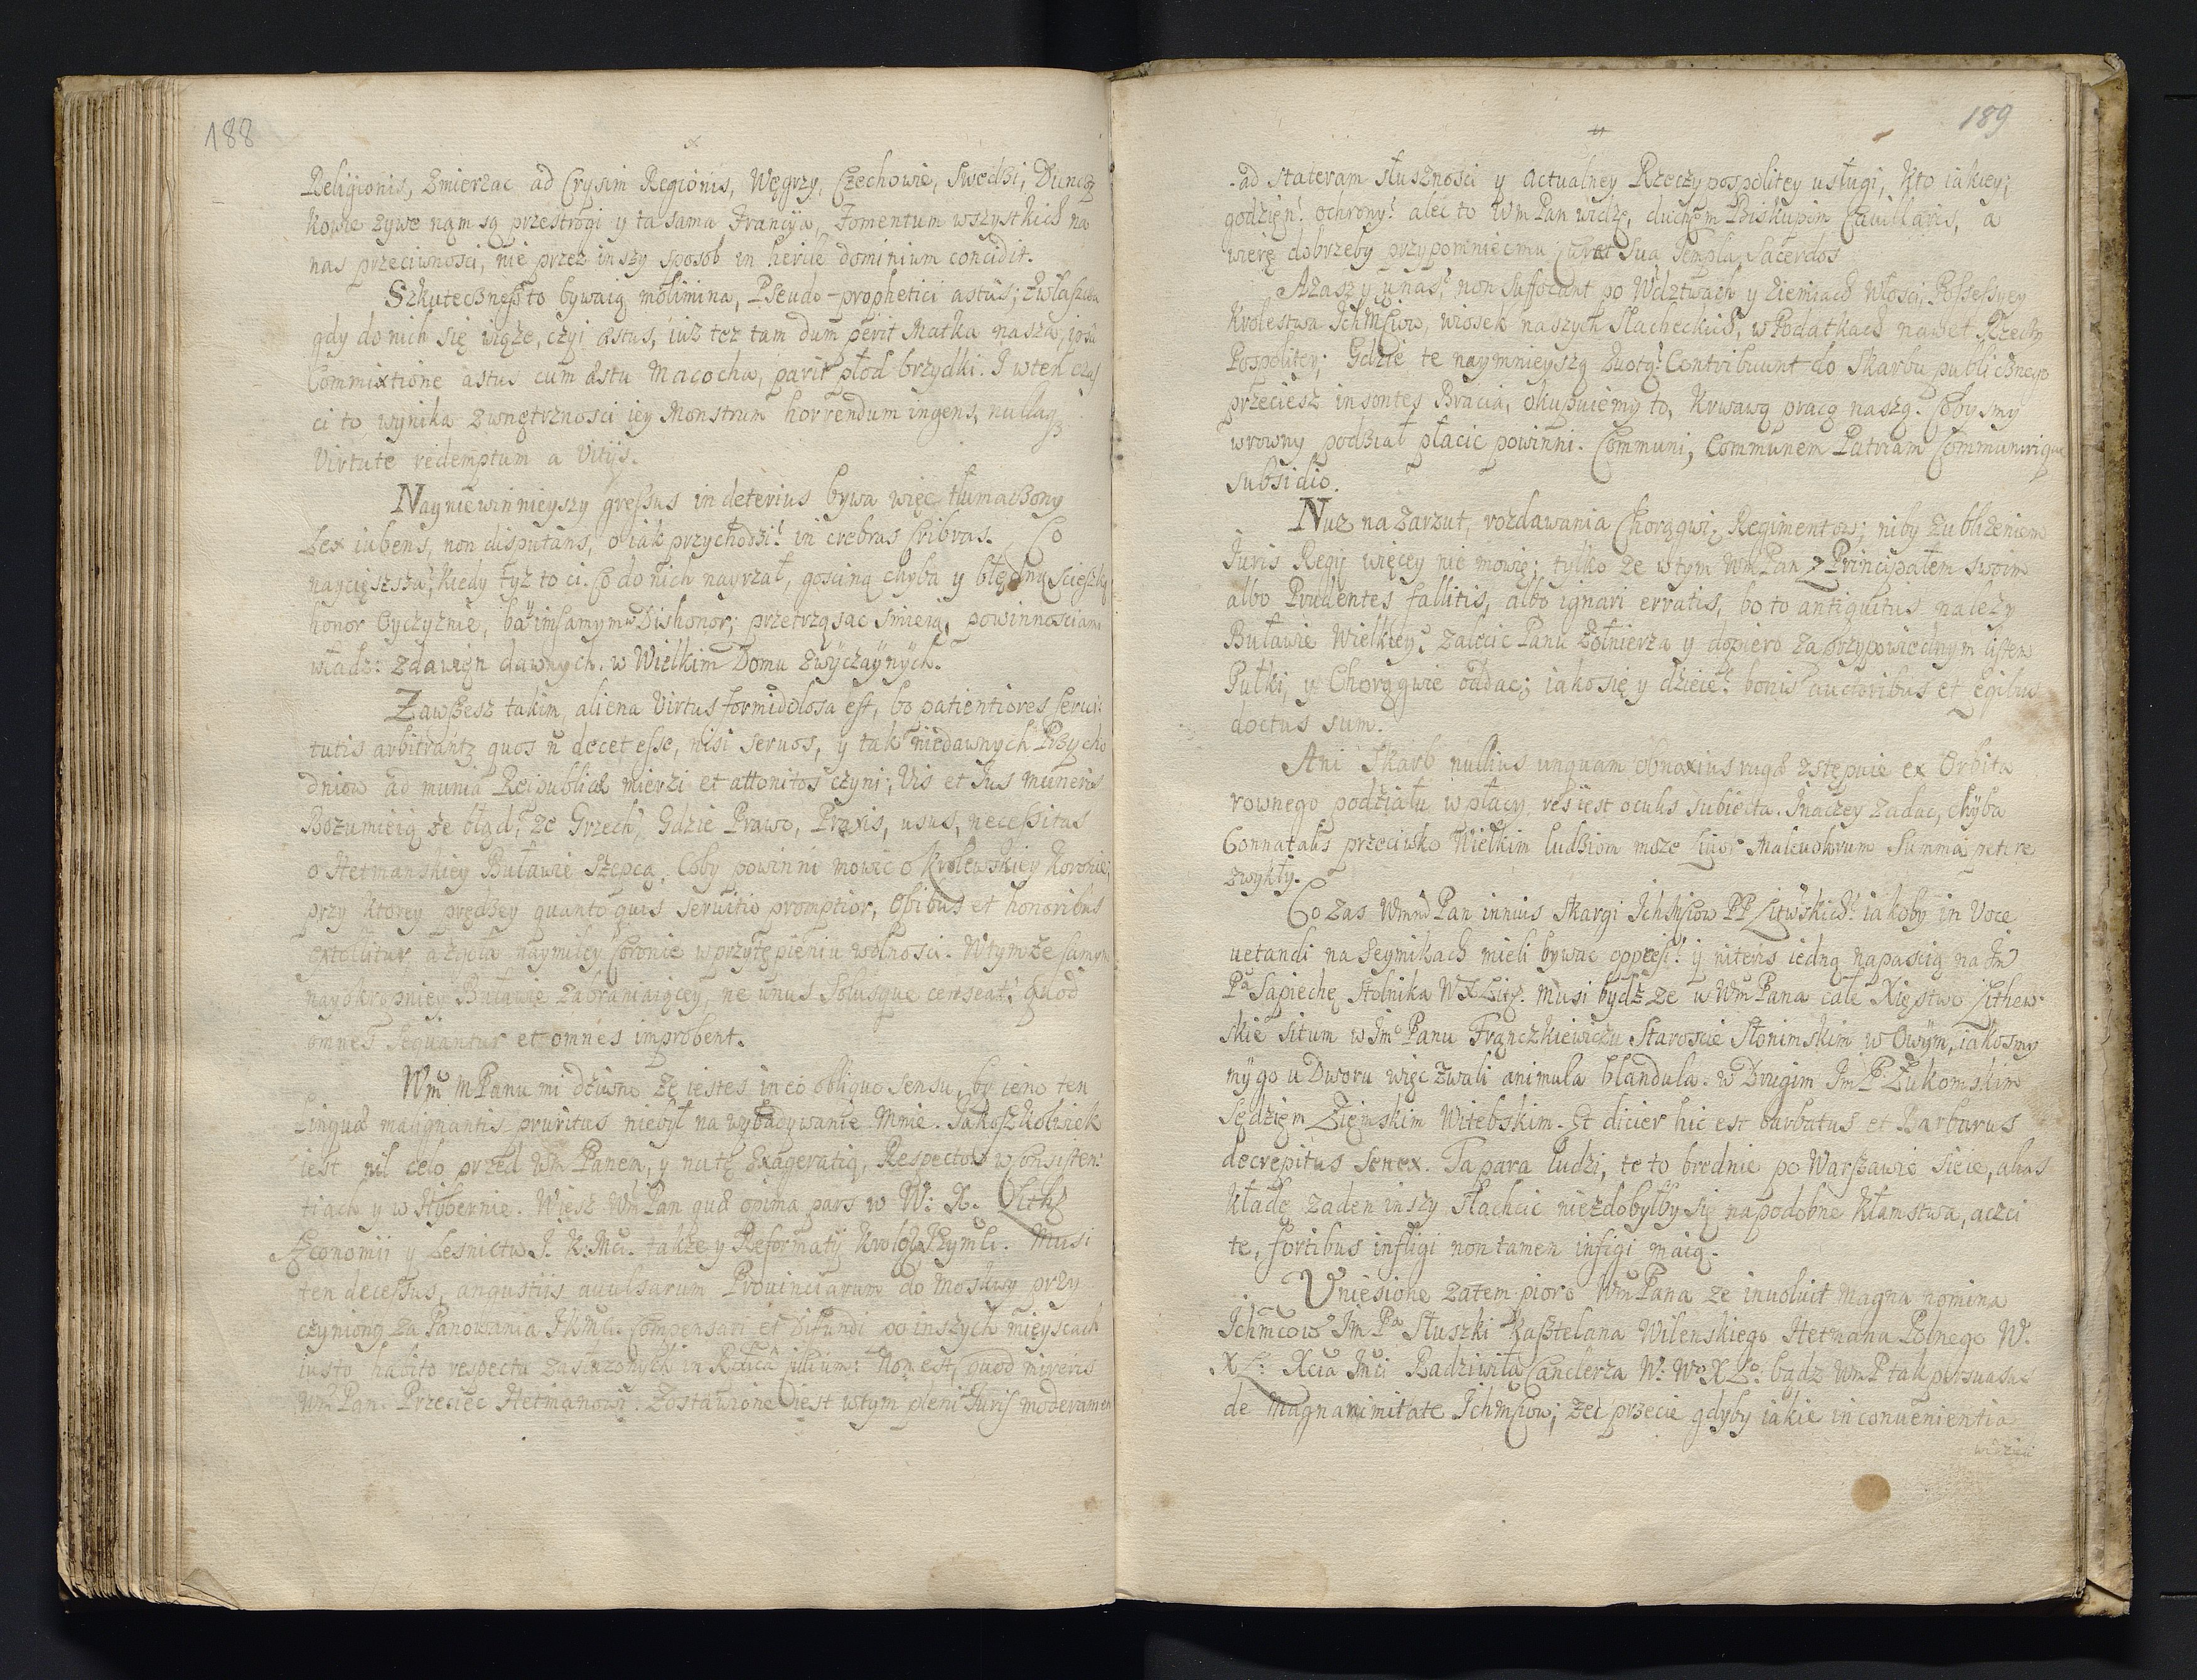 188
Religionis, zmierzac ad Crysim Regionis, Węgrzy, Czechowie, Swedzi, Duncz
kowie zywe nąm są przestrogi y ta sama Francyia, Fomentum wszystkich na
nas przeciwnosci, nie przez inszy sposob in herile dominium concidit.
Szkuteczneß to bywaią molimina, Pseudo-prophetici astus; zwłaszcza
gdy do nich się wiąże, czyi æstus, iuz tez tam dum perit Matka nasza, ipsa
Commixtione astus cum æstu Macocha, parit płod brzydki. I wten czas
ci to wynika zwnętrznosci iey Monstrum horrendum ingens, nullaq3
Virtute redemptum a Vitijs.
Nayniewinnieyszy greßus in deterius bywa więc tłumaczony
Lex iubens, non disputans, o iak przychodzi! in crebras Cribras. Co
naycięszsza, kiedy tyz to ci. Co do nich nayrzał, goscina chyba y błędną scieszką
honor Oyczyznie, ba imsamym Dishonor; przetrząsac smieią, powinnosciami
władz: zdawięn dawnych. w Wielkim Domu zwyczaÿnÿch.
Zawszesz takim, aliena Virtus formidolosa est, bo patientiores serui:
tutis arbitrantz quos ñ decet eße, nisi seruos, y tak niedawnych Przycho
dniow ad munia Reipublicæ mierzi et attonitos czyni; Vis et Jus muneris
Rozumieią że błąd, że Grzech, Gdzie Prawo, Praxis, usus, neceßitas
o Hetmanskiey Buławie szepcą. Coby powinni mowic o Krolewskiey Koronie;
przy ktorey prędzey quanto quis seruitio promptior, Opibus et honoribus
extolitur, a zgoła naymiley Coronie wprzytępieniu wolnosci. Wtymże samym
nayokropniey Buławie zabraniaiącey, ne unus Solusque censeat, quod
omnes sequantur et omnes improbent.
Wm̃ M Panu mi dziwno że iestes in eo obliquo sensu, by ieno ten
Linguæ malignantis pruritus niebył na wybadywanie Mnie. Jakoszkolwiek
iest nil celo przed Wm Panem, y nutę Exageratią, Respectow w Consisten:
tiach y w Hybernie. Wiesz Wm Pan quæ opima pars w W: X. Lith:
Æconomii y Lesnictw J. K. Mci. także y Reformaty Krolow JJchmci. Musi
ten deceßus, angustiis auulsarum Prouinciarum do Moskwy przy
czyniony za Panowania JKMci. Compensari et Difundi po inszych mieyscach
iusto habito respectu zasłuzonych in Rplica ciuium: Non est, quod mireris
Wm Pan. Przeciec Hetmanowi. Zostawione iest wtym pleni Juris moderamen

189
ad stateram słusznosci y actualney Rzeczypospolitey usługi, kto iakiey;
godzien! ochrony! aleć to Wm Pan widzę, duchem Biskupim Cauillaris, a
wierę dobrzeby przypomniecmu curet Sua Templa Sacerdos
Azaszy unas! non suffocant po Wdztwach y Ziemiach włosci Poßeßyey
Krolestwa Ichmsciow, wiosek naszych Slacheckich, w Podatkach nawet Rzeczy
Pospolitey; Gdzie te naymnieyszą zwotą! Contribuunt do Skarbu publicznego
przeciesz insontes Bracia, okupuiemy to, krwawą pracą naszą. Cobysmy
wrowny podział płacic powinni. Communi, Communem Patriam Communirique
subsidio.
Nuz na zarzut, rozdawania Chorągwi, Regimentow; niby zubliżeniem
Juris Regij więcey nie mowię; tylko że wtym Wm Pan z Principałem swoim
albo Prudentes fallitis, albo ignari erratis, bo to antiquitus należy
Buławie Wielkiey! zalecic Panu żołnierza y dopiero za przypowiednym listem
Pułki, y Chorągwie oddac; iako się y dzieie! bonis auctoribus et Egibus
doctus sum.
Ani Skarb nullius unquam obnoxius rugæ zstępuie ex Orbita
rownego podziału wpłacy, res iest oculis subiecta. Inaczey zadac, chyba
Connatalis przeciwko Wielkim ludziom moze Liuor Maleuolorum Summa petere
zwykły.
Co zas Wmm Pan innuis skargi Ichmsciow PP Litewskich! iakoby in Voce
uetandi na Seymikach mieli bywac oppreßi! y niteris iedną napascią na Jm
Pa Sapiehę Stolnika W X Lit: Musi bydź ze u Wm Pana całe Xięstwo Lithew:
skie situm w Jm Panu Franczkiewiczu Staroscie Słonimskim, w Owÿm, iakosmy
mÿ go u Dworu więc zwali animula blandula. w Drugim Jm P: Zukomskim
Sędziem Ziemskim Witebskim. Et dicier hic est barbatus et Barbarus
decrepitus Senex. Ta para ludzi, te to brednie po Warszawie sieie, alias
kładę zaden inszy Slachcic niezdobyłby się na podobne kłamstwa, aczci
te, fortibus infligi non tamen infigi maią.
Uniesione zatem pioro Wm Pana ze inuoluit magna nomina
Ichmcow Jm Pa Słuszki Kasztelana Wilenskiego Hetmana Polnego W.
X L: Xcia Jmci Radziwiła Canclerza W: W: X L: bądz Wm P tak persuasus
de Magnanimitate Ichmsciow; żeć przecie gdyby iakie inconuenientia
wedzieli